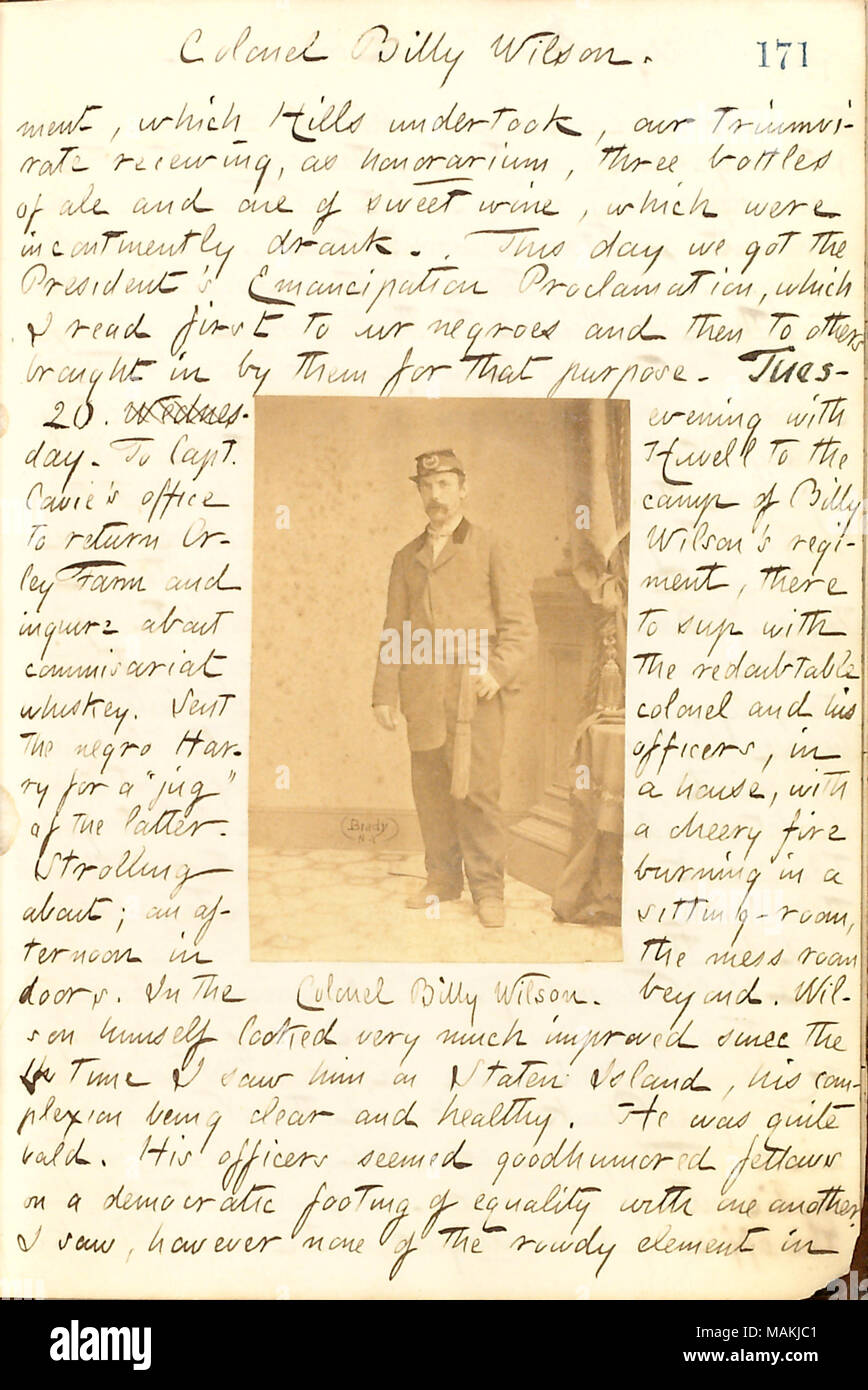 Colonel Billy Wilson.
171
ment, which Hills undertook, our triumvi-
rate receiving, as honorarium, three bottles
of ale and one of sweet wine, which were
incontinently drank. . This day we got the
President's Emancipation Proclamation, which
I read first to our negroes and then to others
brought in by them for that purpose. Tues-
20. Wednes-
day. To Capt.
Cavie's office
to return Or-
ley Farm and
inquire about
commisariat
whiskey. Sent
the negro Har-
ry for a "jug"
of the latter.
Strolling
about; an af-
ternoon in
doors. In the
evening with
Howell to the
camp of Billy
Wilson's regi-
ment, there
to sup with
the redoubtable
colonel and his
officers, in
a house, with
a cheery fire
burning in a
sitting-room,
the mess room
beyond. Wil-
Brady
N.Y.
Colonel Billy Wilson.
son himself looked very much improved since the
time I saw him on Staten Island, his com-
plexion being clear and healthy. He was quite
bald. His officers seemed goodhumored fellows
on a democratic footing of equality with one another.
I saw, however none of the rowdy element in
a alamy stock photo
MAKJC1
www.alamy.com